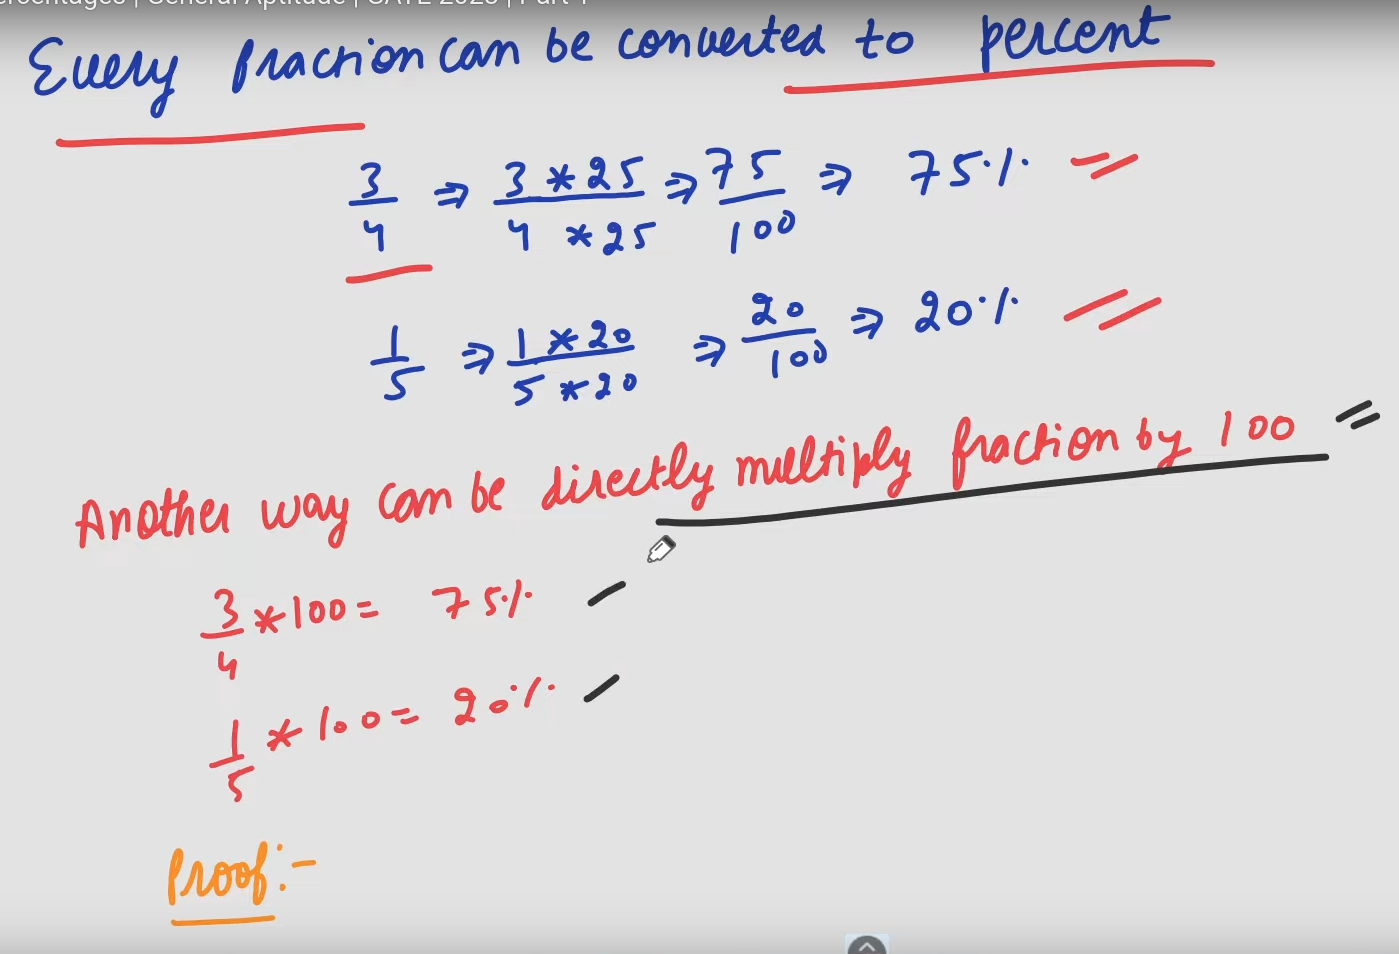 Percentages | General Aptitude | GATE 2023 | Part 1
Every fraction can be converted to percent
3/4 ⇒ 3 * 25 / 4 * 25 ⇒ 75/100 ⇒ 75%
1/5 ⇒ 1 * 20 / 5 * 20 ⇒ 20/100 ⇒ 20%
Another way can be directly multiply fraction by 100
3/4 * 100 = 75%
1/5 * 100 = 20%
Proof:-